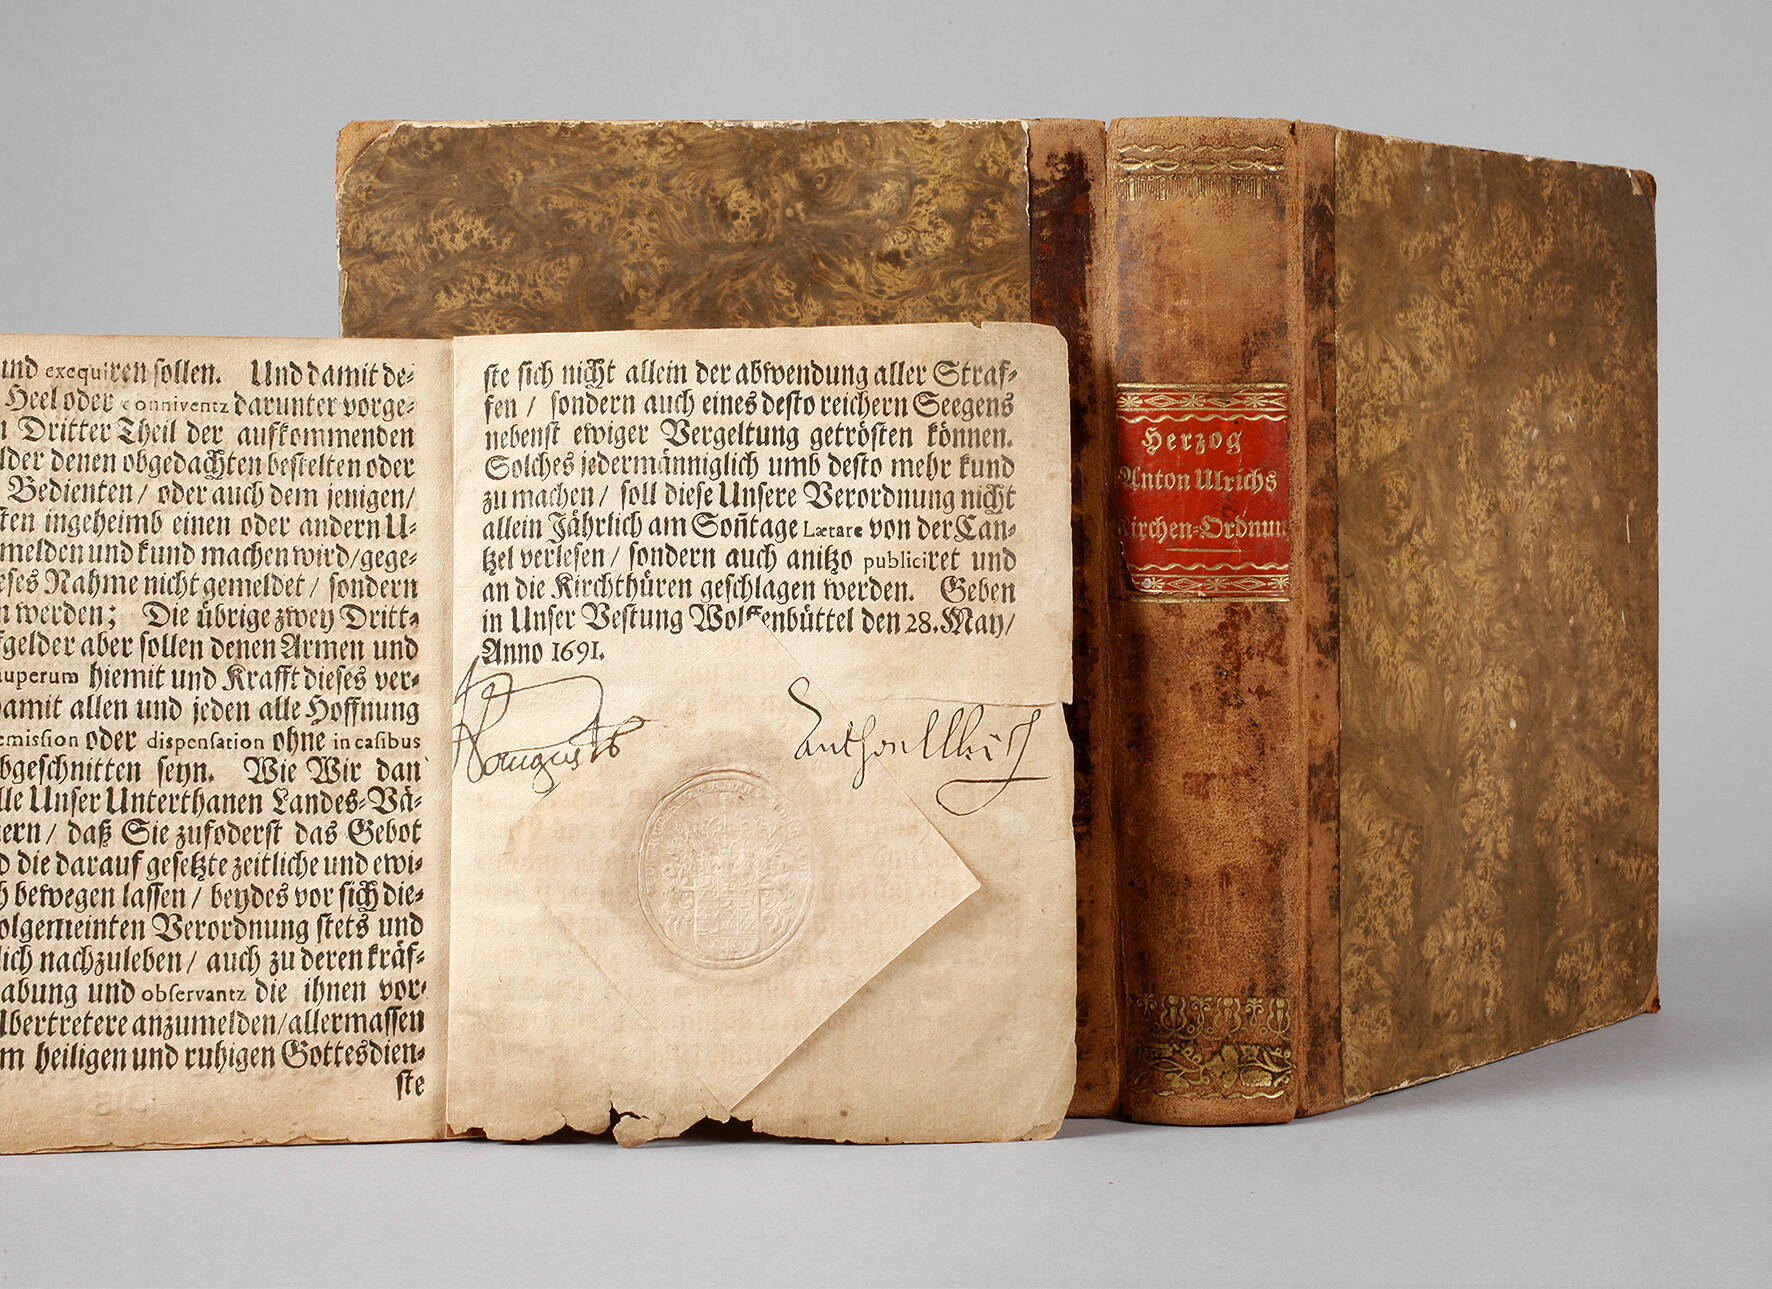 und exequiren sollen. Und damit de⸗
Heel oder conniventz darunter vorge⸗
Dritter Theil der aufkommenden
lder denen obgedachten bestelten oder
Bedienten / oder auch dem jenigen /
ten ingeheimb einen oder andern U⸗
melden und kund machen wird / gege⸗
eses Nahme nicht gemeldet / sondern
n werden; Die übrige zwey Dritt⸗
fgelder aber sollen denen Armen und
auperum hiemit und Krafft dieses ver⸗
amit allen und jeden alle Hoffnung
emission oder dispensation ohne in casibus
bgeschnitten seyn. Wie Wir dan
lle Unser Unterthanen Landes⸗Vä⸗
ern / daß Sie zufoderst das Gebot
d die darauf gesetzte zeitliche und ewi⸗
h bewegen lassen / beydes vor sich die⸗
olgemeinten Verordnung stets und
lich nachzuleben / auch zu deren kräf⸗
abung und observantz die ihnen vor⸗
Ubertretere anzumelden / allermassen
m heiligen und ruhigen Gottesdien⸗
ste
ste sich nicht allein der abwendung aller Straf⸗
fen / sondern auch eines desto reichern Seegens
nebenst ewiger Vergeltung getrösten können.
Solches jedermänniglich umb desto mehr kund
zu machen / soll diese Unsere Verordnung nicht
allein Jährlich am Soñtage Lætare von der Can⸗
tzel verlesen / sondern auch anitzo publiciret und
an die Kirchthüren geschlagen werden. Geben
in Unser Vestung Wolffenbüttel den 28. May /
Anno 1691.
Raugustb
AnthonUlrich
Herzog
Anton Ulrichs
Kirchen⸗Ordnun